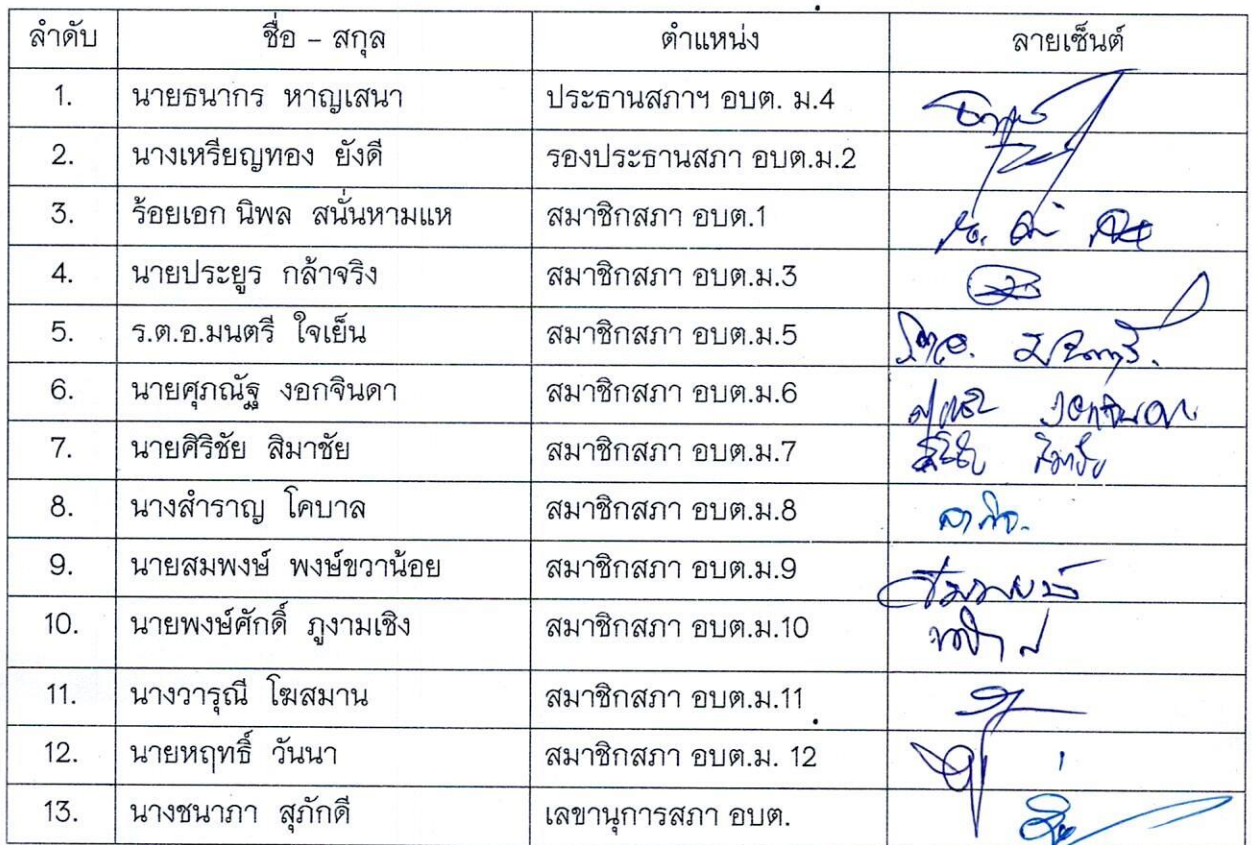 ลำดับ ชื่อ - สกุล ตำแหน่ง ลายเซ็นต์
1. นายธนากร หาญเสนา ประธานสภาฯ อบต. ม.4
2. นางเหรียญทอง ยังดี รองประธานสภา อบต.ม.2
3. ร้อยเอก นิพล สนั่นหามแห สมาชิกสภา อบต.1
4. นายประยูร กล้าจริง สมาชิกสภา อบต.ม.3
5. ร.ต.อ.มนตรี ใจเย็น สมาชิกสภา อบต.ม.5
6. นายศุภณัฐ งอกจินดา สมาชิกสภา อบต.ม.6
7. นายศิริชัย สิมาชัย สมาชิกสภา อบต.ม.7
8. นางสำราญ โคบาล สมาชิกสภา อบต.ม.8
9. นายสมพงษ์ พงษ์ขวาน้อย สมาชิกสภา อบต.ม.9
10. นายพงษ์ศักดิ์ ภูงามเชิง สมาชิกสภา อบต.ม.10
11. นางวารุณี โฆสมาน สมาชิกสภา อบต.ม.11
12. นายหฤทธิ์ วันนา สมาชิกสภา อบต.ม. 12
13. นางชนาภา สุภักดี เลขานุการสภา อบต.